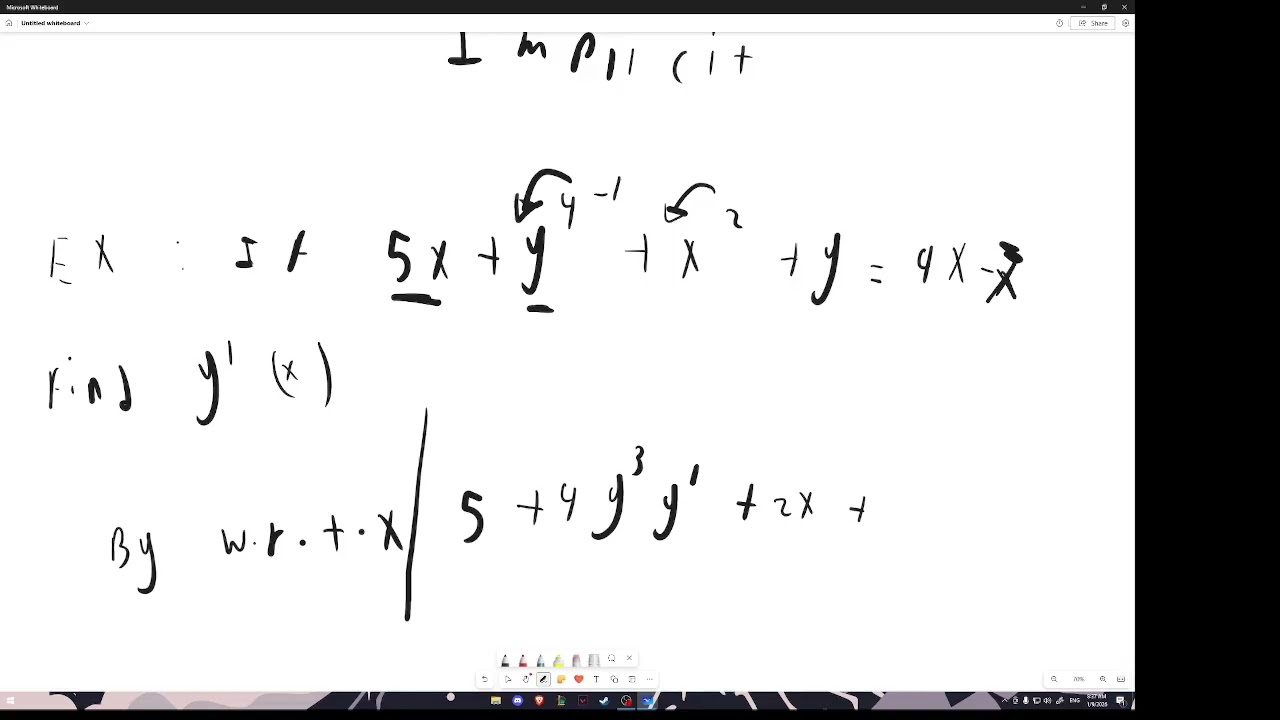 Microsoft Whiteboard
Untitled whiteboard
Share
Implicit
EX : If 5x + y^4 -1 + x^2 + y = 4x -
Find y' (x)
By w.r.t.x | 5 + 4y^3 y' + 2x +
70%
ENG
8:37 AM
1/9/2026